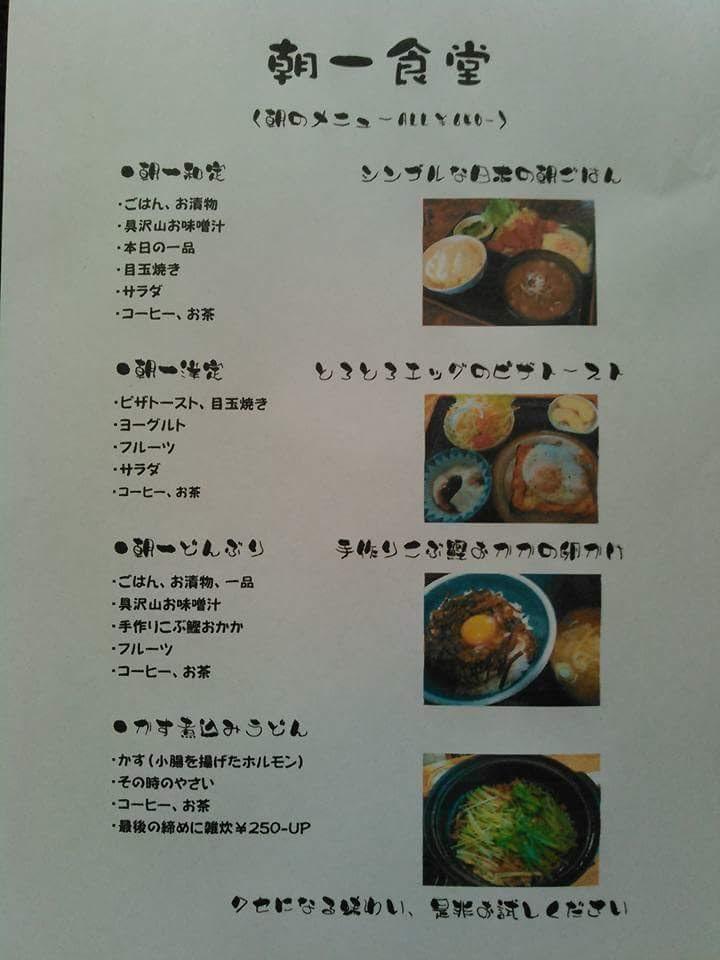 朝一食堂
(朝のメニュー ALL¥640-)
●朝一和定 シンプルな日本の朝ごはん
・ごはん、お漬物
・具沢山お味噌汁
・本日の一品
・目玉焼き
・サラダ
・コーヒー、お茶
●朝一洋定 とろとろエッグのピザトースト
・ピザトースト、目玉焼き
・ヨーグルト
・フルーツ
・サラダ
・コーヒー、お茶
●朝一どんぶり 手作りこぶ鰹おかかの卵かけ
・ごはん、お漬物、一品
・具沢山お味噌汁
・手作りこぶ鰹おかか
・フルーツ
・コーヒー、お茶
●かす煮込みうどん
・かす(小腸を揚げたホルモン)
・その時のやさい
・コーヒー、お茶
・最後の締めに雑炊¥250-UP
クセになる味わい、是非お試しください